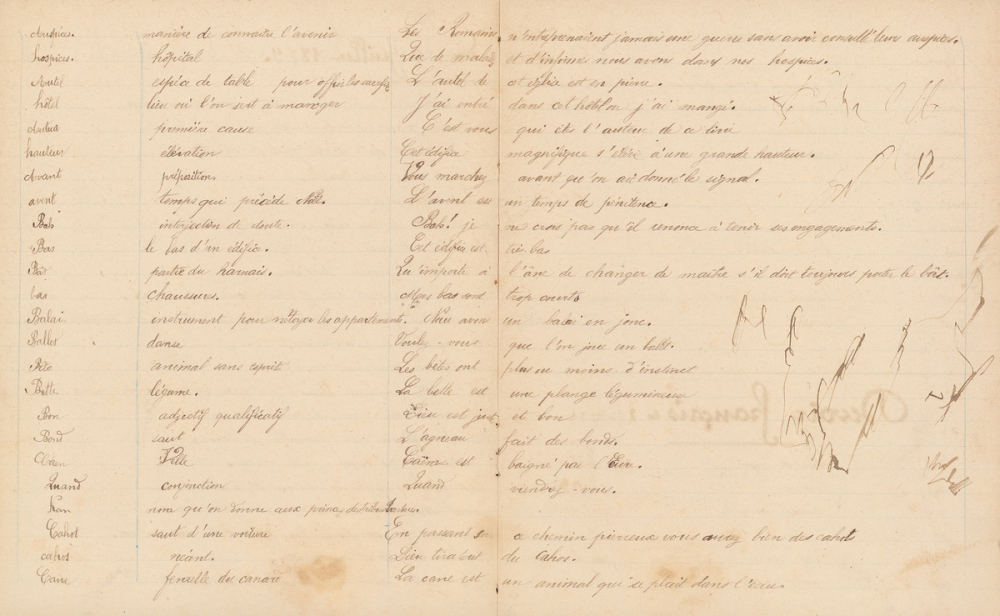 Auspices. manière de connaitre l'avenir Les Romains n'entreprenaient jamais une guerre sans avoir consulté leurs auspices.
hospices. hôpital Que de malades et d'infirmes nous avons dans nos hospices.
Autel espèce de table pour offrir les sacrifices L'autel de cet église est en pierre.
hôtel lieu où l'on sert à manger J'ai entré dans cet hôtel où j'ai mangé.
Auteur première cause C'est vous qui êtes l'auteur de ce livre
hauteur élévation Cet édifice magnifique s'élève à une grande hauteur.
Avant préposition. Vous marchez avant qu'on ait donné le signal.
avent temps qui précède Noël. L'avent est un temps de pénitence.
Bah interjection de doute. Bah! je ne crois pas qu'il renonce à tenir ses engagements.
Bas le bas d'un édifice. Cet édifice est très bas
Bât partie du harnais. Qu'importe à l'âne de changer de maitre s'il doit toujours porter le bât.
bas chaussures. Mes bas sont trop courts
Balai instrument pour nettoyer les appartements. Nous avons un balai en jonc.
Ballet danse Voulez-vous que l'on joue un ballet.
Bête animal sans esprit Les bêtes ont plus ou moins d'instinct
Bette légume. La bette est une plange légumineuse
Bon adjectif qualificatif Dieu est juste et bon
Bond saut L'agneau fait des bonds.
Caen Ville Caen est baigné par l'Eure.
Quand conjonction Quand viendrez-vous.
Kan nom qu'on donne aux princes des tribus
Cahot saut d'une voiture En passant sur ce chemin pierreux vous aurez bien des cahots
cahos néant. Dieu tira tout du Cahos.
Cane femelle du canard La cane est un animal qui se plait dans l'eau.
Devoir français